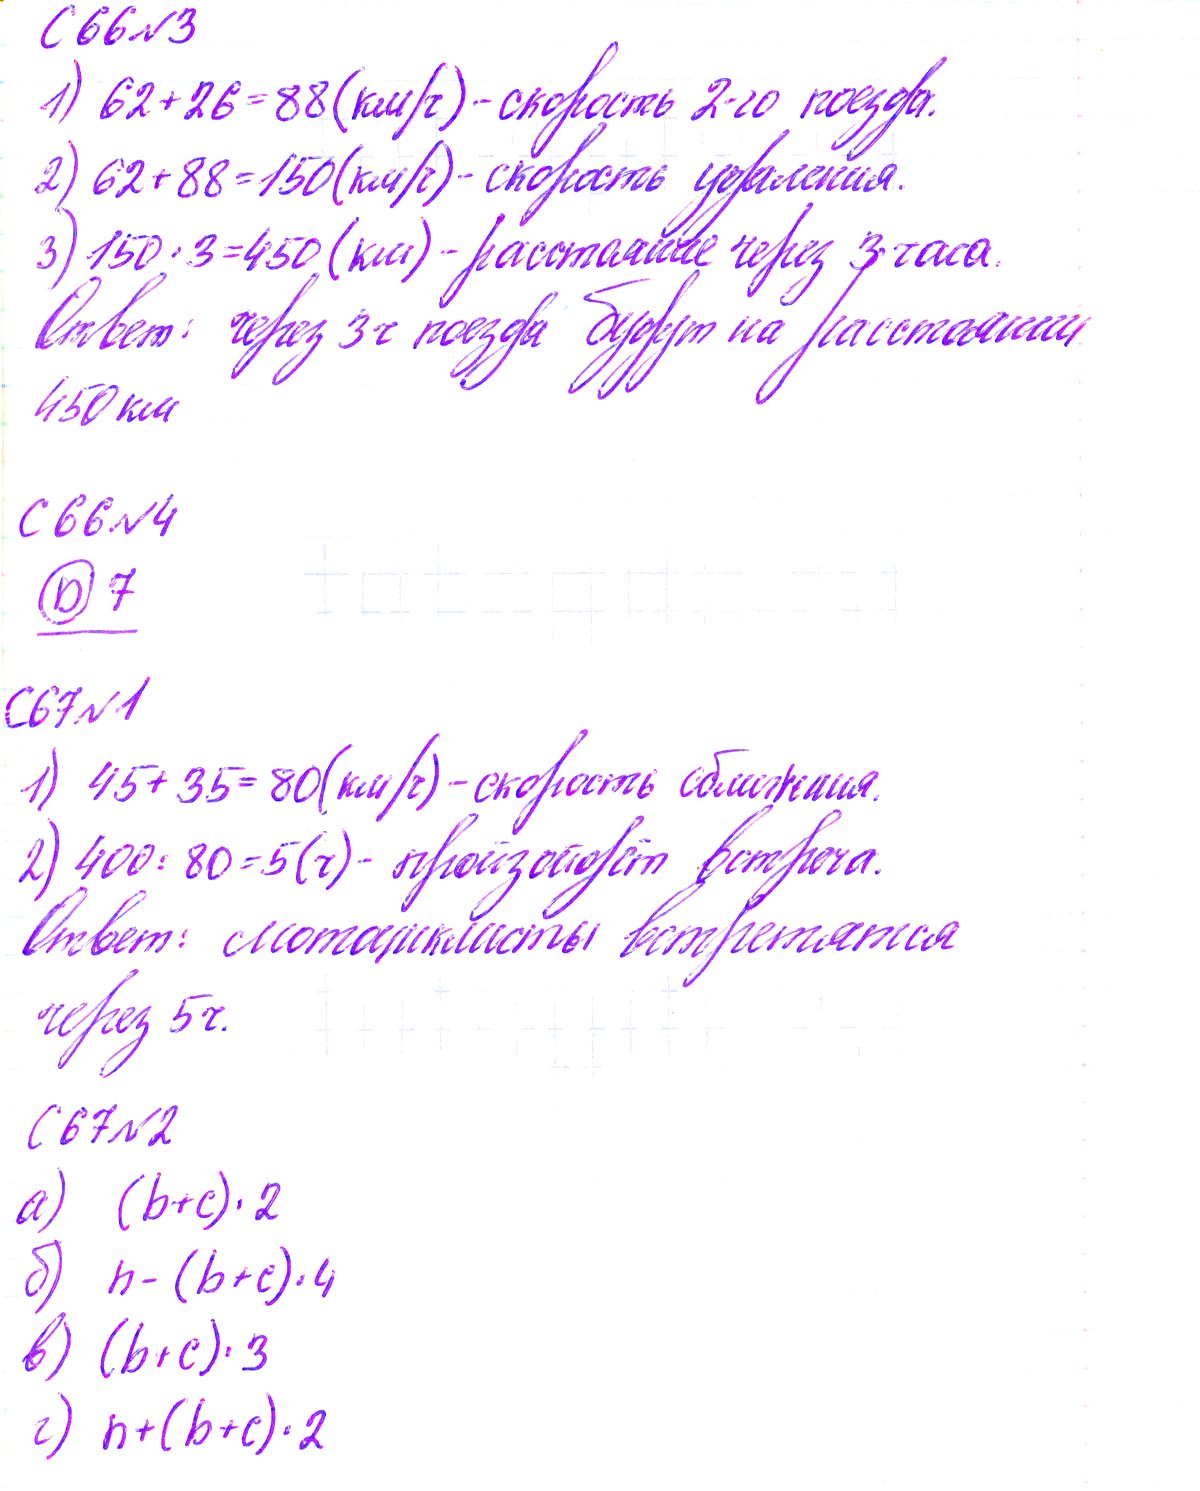 С 66 №3
1) 62+26=88(км/ч) - скорость 2-го поезда.
2) 62+88=150(км/ч) - скорость удаления.
3) 150·3=450(км) - расстояние через 3 часа.
Ответ: через 3ч поезда будут на расстоянии
450 км
С 66 №4
D 7
С 67 №1
1) 45+35=80(км/ч) - скорость сближения.
2) 400:80=5(ч) - произойдёт встреча.
Ответ: мотоциклисты встретятся
через 5ч.
С 67 №2
а) (b+c)·2
б) n-(b+c)·4
в) (b+c)·3
г) n+(b+c)·2